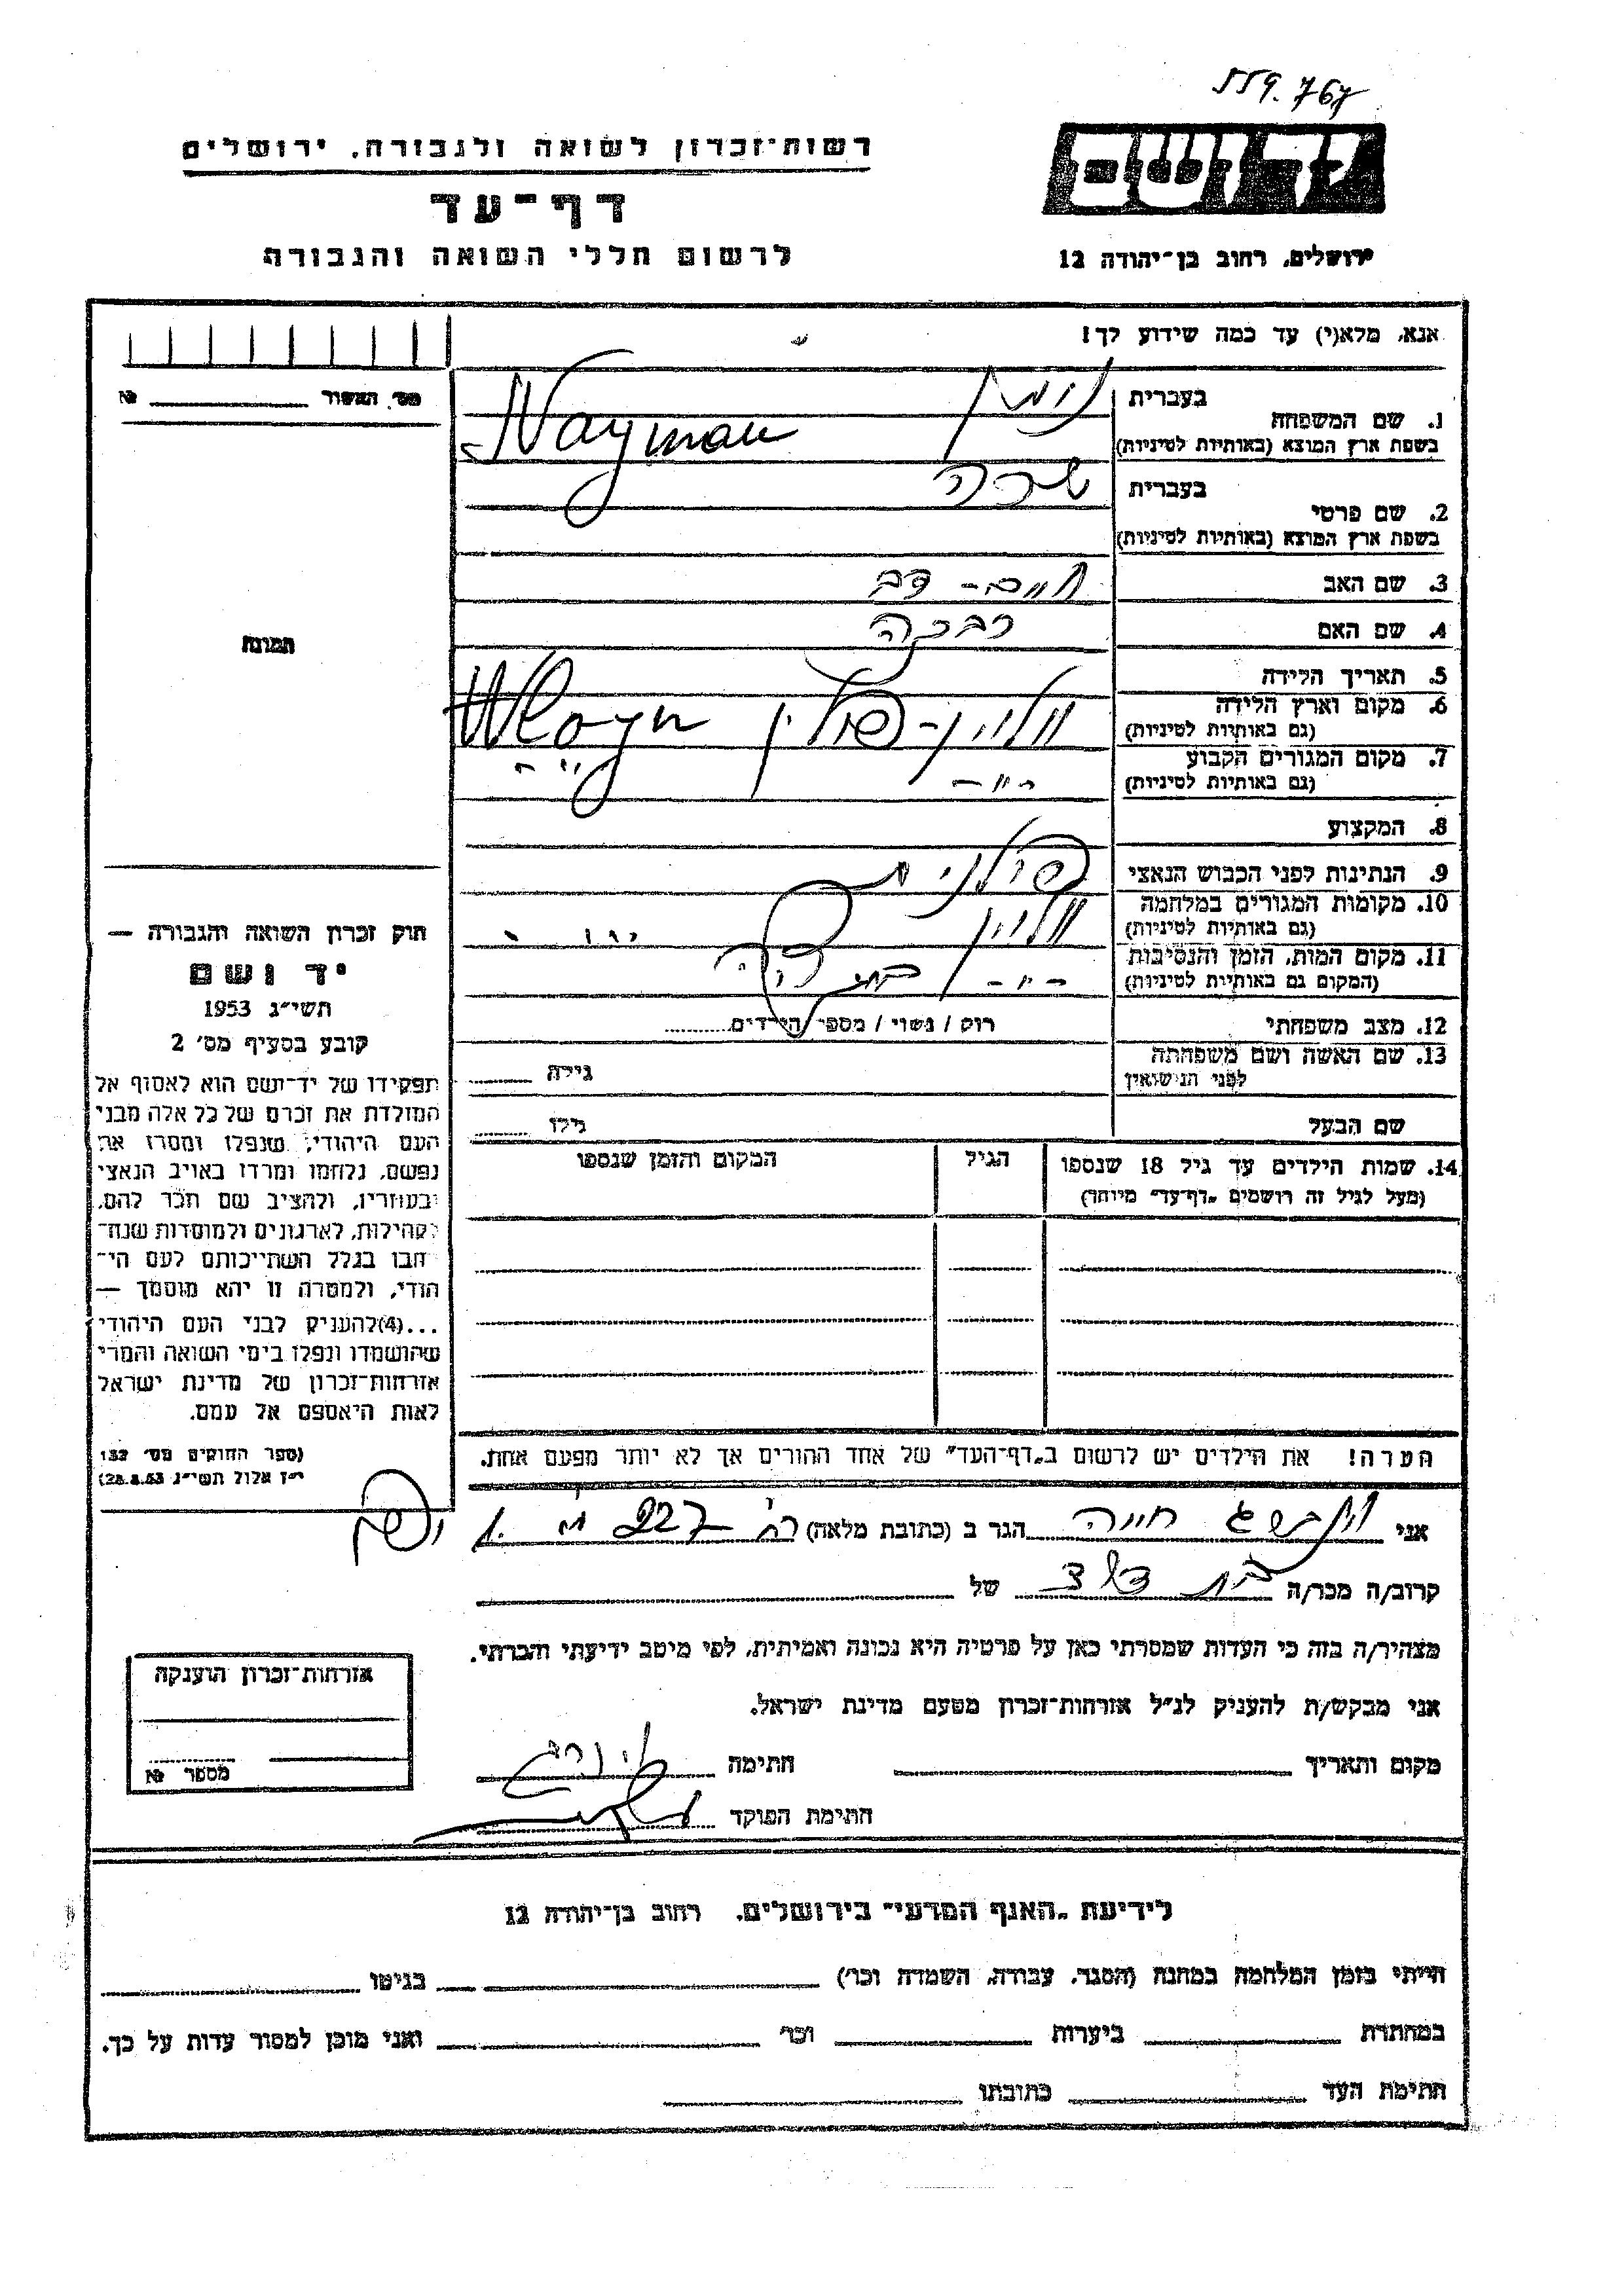 559.767
יד ושם
רשות־זכרון לשואה ולגבורה, ירושלים
דף־עד
לרשום חללי השואה והגבורה
ירושלים, רחוב בן־יהודה 12
אנא, מלא(י) עד כמה שידוע לך!
מס. האשור № ______
1. שם המשפחה
בעברית
נוימן
בשפת ארץ המוצא (באותיות לטיניות)
Nayman
2. שם פרטי
בעברית
שרה
בשפת ארץ המוצא (באותיות לטיניות)
3. שם האב
חיים - דב
4. שם האם
רבקה
תמונה
5. תאריך הלידה
6. מקום וארץ הלידה
(גם באותיות לטיניות)
וולוין - פולין Wloyn
7. מקום המגורים הקבוע
(גם באותיות לטיניות)
- " - - " -
8. המקצוע
9. הנתינות לפני הכבוש הנאצי
פולנית
10. מקומות המגורים במלחמה
(גם באותיות לטיניות)
וולוין
11. מקום המות, הזמן והנסיבות
(המקום גם באותיות לטיניות)
- " -
12. מצב משפחתי
רווק / נשוי / מספר הילדים
13. שם האשה ושם משפחתה
לפני הנישואין
גילה
שם הבעל
גילו
14. שמות הילדים עד גיל 18 שנספו
(מעל לגיל זה רושמים „דף־עד" מיוחד)
הגיל
המקום והזמן שנספו
חוק זכרון השואה והגבורה —
יד ושם
תשי"ג 1953
קובע בסעיף מס' 2
תפקידו של יד־ושם הוא לאסוף אל
המולדת את זכרם של כל אלה מבני
העם היהודי, שנפלו ומסרו את
נפשם, נלחמו ומרדו באויב הנאצי
ובעוזריו, ולהציב שם וזכר להם,
לקהילות, לארגונים ולמוסדות שנח־
רבו בגלל השתייכותם לעם הי־
הודי, ולמטרה זו יהא מוסמך —
...(4)להעניק לבני העם היהודי
שהושמדו ונפלו בימי השואה והמרי
אזרחות־זכרון של מדינת ישראל
לאות היאספם אל עמם.
(ספר החוקים מס' 132
י"ז אלול תשי"ג 28.8.53)
הערה! את הילדים יש לרשום ב„דף־העד" של אחד ההורים אך לא יותר מפעם אחת.
אני חיה הגר ב (כתובת מלאה) רח' 227
קרוב/ה מכר/ה בת דוד של
מצהיר/ה בזה כי העדות שמסרתי כאן על פרטיה היא נכונה ואמיתית, לפי מיטב ידיעתי והכרתי.
אני מבקש/ת להעניק לנ"ל אזרחות־זכרון מטעם מדינת ישראל.
מקום ותאריך ______ חתימה
חתימת הפוקד
אזרחות־זכרון הוענקה
מספר №
לידיעת „האגף המדעי" בירושלים, רחוב בן־יהודה 12
הייתי בזמן המלחמה במחנה (הסגר, עבודה, השמדה וכו') ______ בגיטו ______
במחתרת ______ ביערות ______ וכו' ______ ואני מוכן למסור עדות על כך.
חתימת העד ______ כתובתו ______